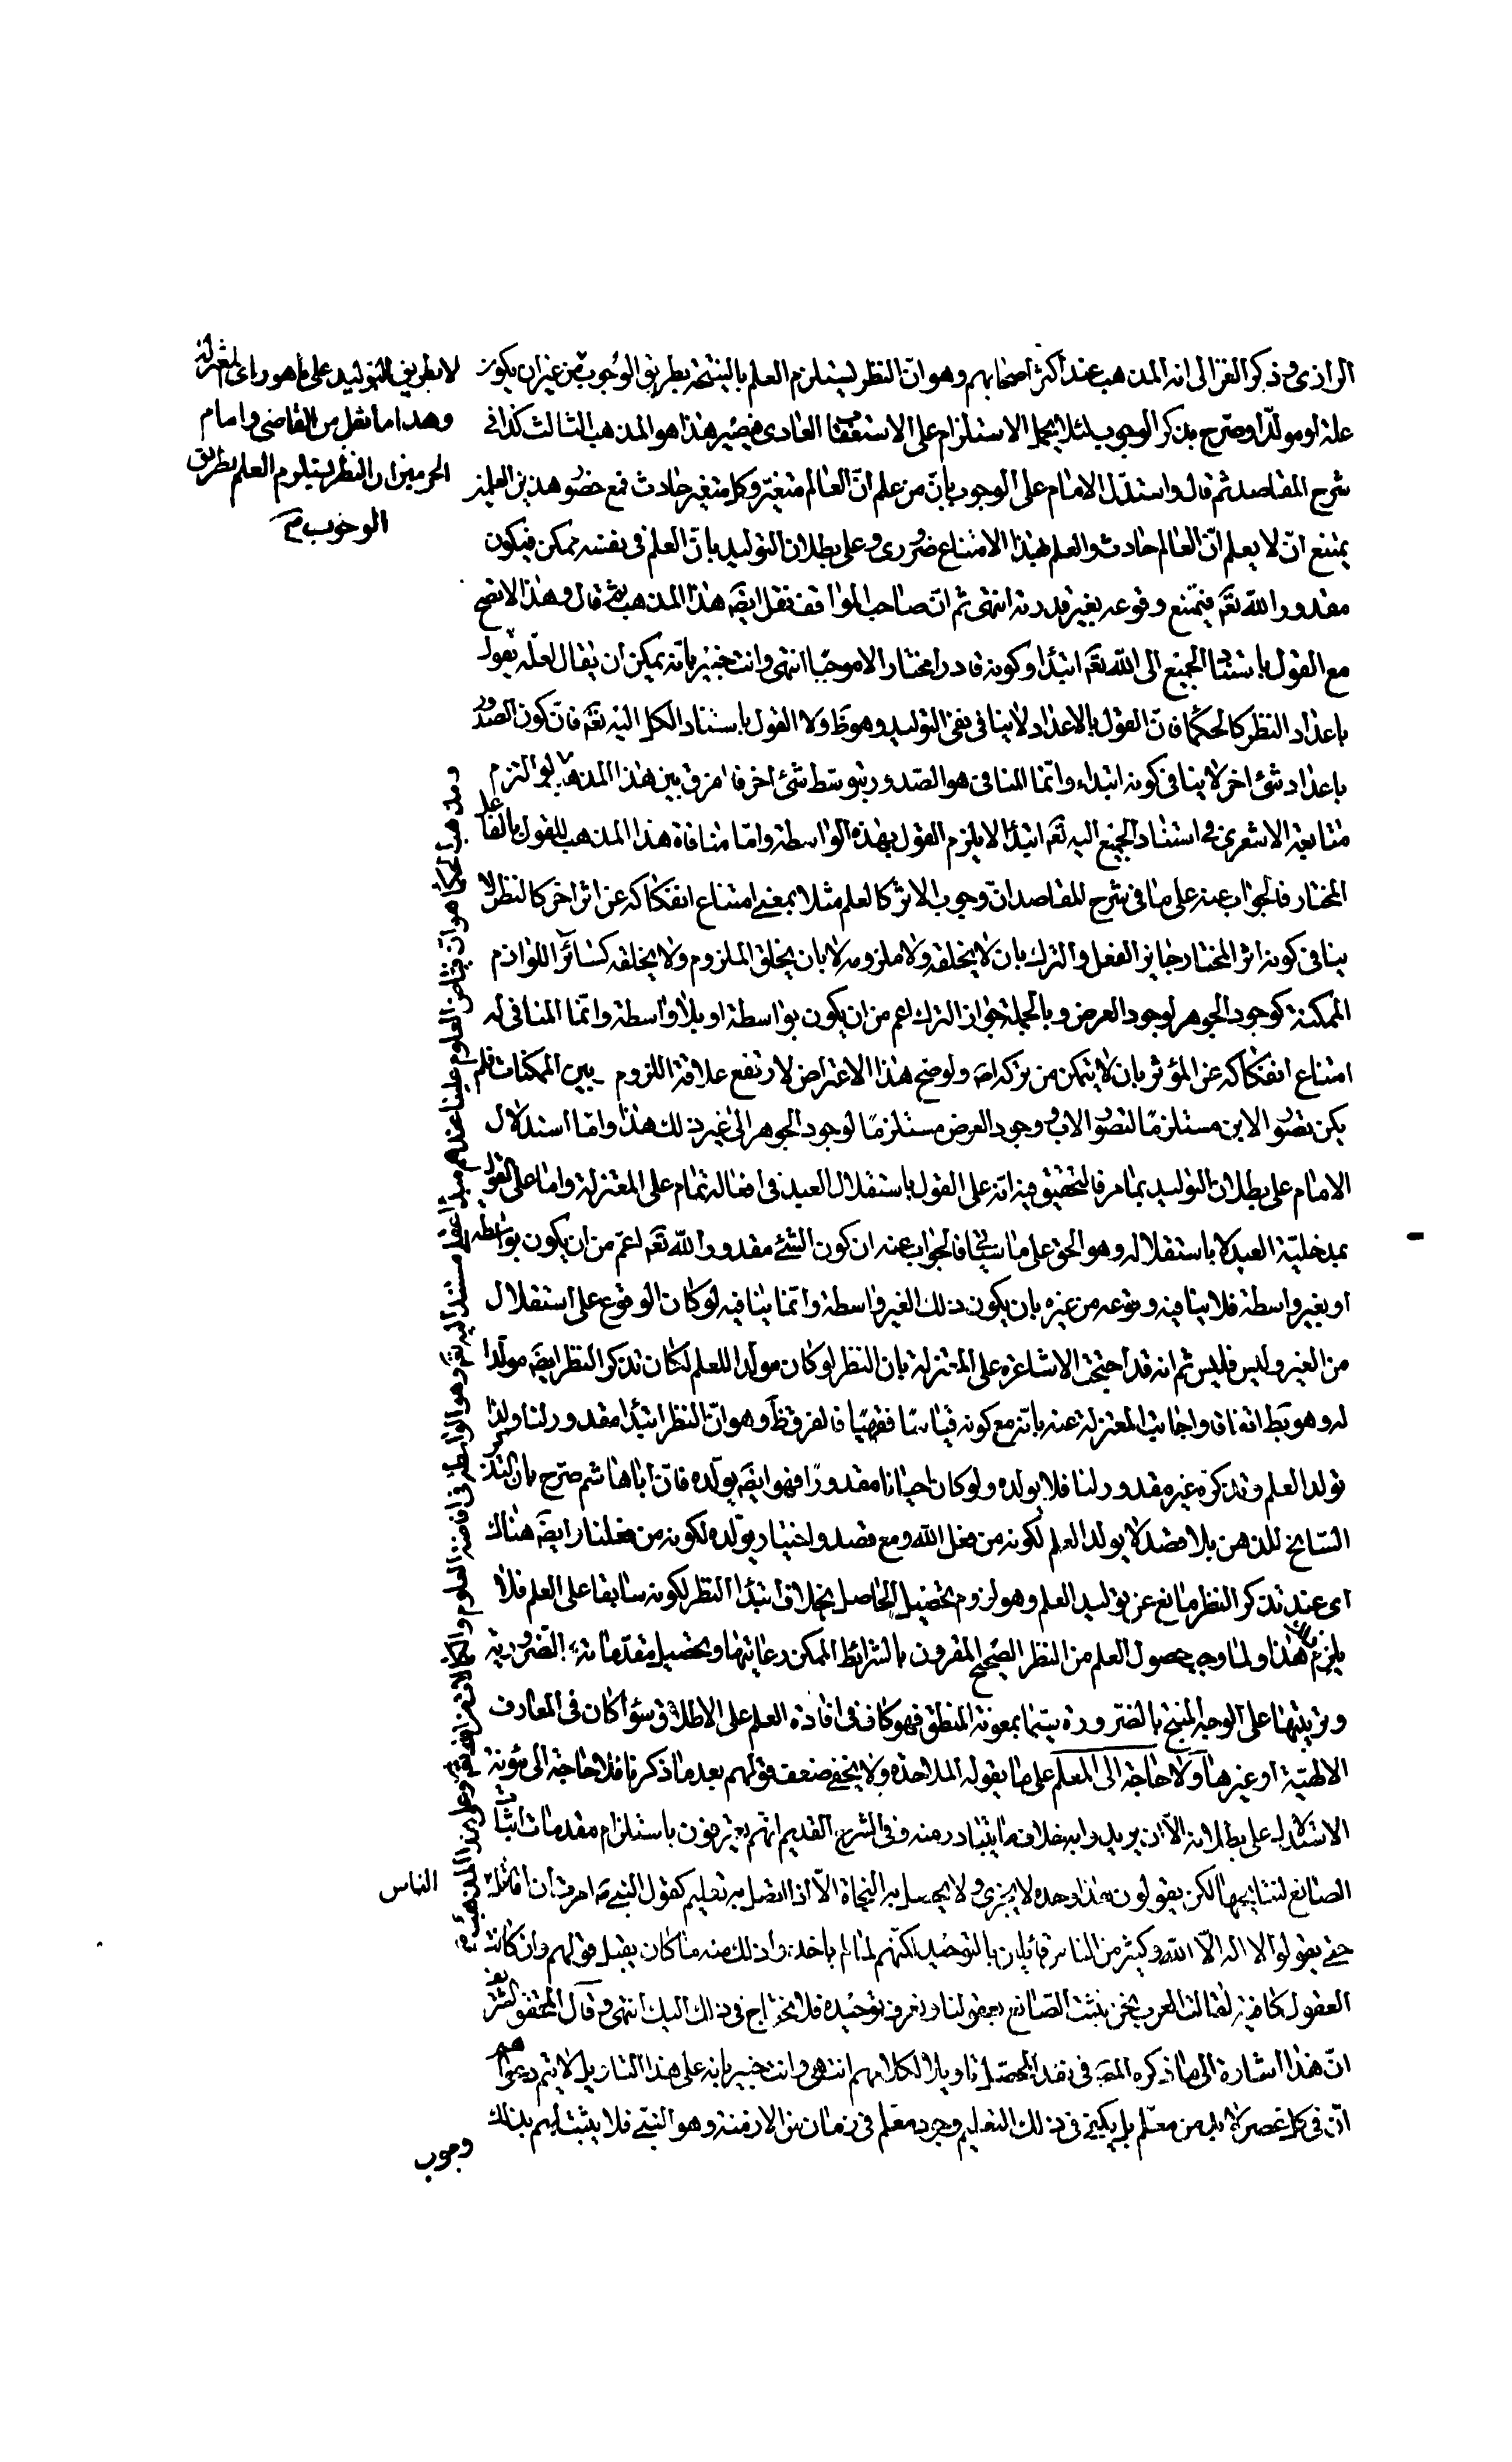 الرازى وذكر الغزالى انه المذهب عند اكثر اصحابهم وهو انّ النظر يستلزم العلم بالنتيجة بطريق الوجوب من غير ان يكون
علة او مولّدا وصرّح بذكر الوجوب لئلا يحمل الاستلزام على الاستعقاب العادى فيصير هذا هو المذهب الثالث كذا فى
شرح المقاصد ثم قال واستدل الامام على الوجوب بانّ من علم انّ العالم متغيّر وكل متغير حادث فمع حضور هذين العلمين
يمتنع ان لا يعلم انّ العالم حادث والعلم بهذا الامتناع ضرورى وعلى بطلان التوليد بانّ العلم فى نفسه ممكن فيكون
مقدور الله تعَم فيمتنع وقوعه بغير قدرته انتهى ثم انّ صاحب المواقف نقل ايضَه هذا المذهب ثم قال وهذا لا يصح
مع القول باستناد الجميع الى الله تعَم ابتداء وكونه قادرا مختارا لا موجبًا انتهى وانت خبير بانّه يمكن ان يقال لعلّه يقول
باعداد النظر كالحكما فانّ القول بالاعداد لا ينافى نفى التوليد وهو ظَ ولا القول باستناد الكل اليه تعَم فانّ كون الصدور
باعداد شئ اخر لا ينافى كونه ابتداء وانّما المنافى هو الصّدور بتوسّط شئ اخر فافرق بين هذا المذهب لو التزم
متابعة الاشعرى فى استناد الجميع اليه تعَم ابتداء لا يلزم القول بهذه الواسطة وامّا منافاة هذا المذهب للقول بالفاعل
المختار فالجواب عنه على ما فى شرح المقاصد انّ وجوب الاثر كالعلم مثلا بمعنى امتناع انفكاكه عن اثر اخر كالنظر لا
ينافى كونه اثر المختار جايز الفعل والترك بان لا يخلقه ولا ملزومه لا بان يخلق الملزوم ولا يخلقه كسائر اللوازم
الممكنة كوجود الجوهر لوجود العرض وبالجملة جواز الترك اعم من ان يكون بواسطة او بلا واسطة وانّما المنافى له
امتناع انفكاكه عن المؤثر بان لا يتمكن من تركه اصَه ولو صح هذا الاعتراض لارتفع علاقة اللزوم بين الممكنات فلم
يكن تصوّر الابن مستلزمًا لتصوّر الاب ووجود العرض مستلزمًا لوجود الجوهر الى غير ذلك هذا وامّا استدلال
الامام على بطلان التوليد بما مر فالتحقيق فيه انّه على القول باستقلال العبد فى افعاله تمام على المعتزلة واما على القول
بمدخليّة العبد لا باستقلاله وهو الحق على ما سيأتى فالجواب عنه ان كون الشئ مقدور الله تعَم اعمّ من ان يكون بواسطة
او بغير واسطة فلا ينافيه وقوعه من غيره بان يكون ذلك الغير واسطة وانّما ينافيه لو كان الوقوع على استقلال
من الغير وليس فليس ثم انه قد احتجت الاشاعرة على المعتزلة بان النظر لو كان مولّدا للعلم لكان تذكر النظر ايضَه مولّدا
له وهو بَط اتفاقا واجابت المعتزلة عنه بانّه مع كونه قياسًا فقهيّا فالفرق ظَ وهو انّ النظر ابتداء مقدور لنا ولذا
تولد العلم وتذكره غير مقدور لنا فلا يولده ولو كان احيانا مقدورًا فهو ايضَه يولّده فانّ اباهاشم صرّح بان التذكر
السّانح للذهن بلا قصد لا يولد العلم لكونه من فعل الله ومع قصد واختيار يولّده لكونه من فعلنا وايضَه هناك
اى عند تذكر النظر مانع عن توليد العلم وهو لزوم تحصيل الحاصل بخلاف ابتداء النظر لكونه سابقا على العلم فلا
يلزم ذلك هذا ولما وجب حصول العلم من النظر الصّحيح المقرون بالشرائط الممكن رعايتها وتحصيل مقدّماته الضرورية
وترتيبها على الوجه المنتج بالضرورة سيّما بمعونة المنطق فهو كاف فى افادة العلم على الاطلاق سواء كان فى المعارف
الالهيّة او غيرها ولا حاجة الى المعلم على ما يقوله الملاحدة ولا يخفى ضعف قولهم بعد ما ذكرنا فلا حاجة الى مؤنة
الاستدلال على بطلانه الاّ ان يريدوا به خلاف ما يتبادر منه وفى الشرح القديم انّهم يعترفون باستلزام مقدمات اثبات
الصّانع لنتايجها لكن يقولون هذا وحده لا يجزى ولا يحصل به النجاة الاّ اذا اتصل به تعليم كقول النبى صَ امرت ان اقاتل الناس
حتى يقولوا لا اله الاّ الله وكثير من الناس قائلون بالتوحيد لكنّهم لما لم ياخذوا ذلك منه ما كان يقبل قولهم وان كانت
العقول كافية لقالت العرب نحن نثبت الصّانع بعقولنا ونعرف توحيده فلا نحتاج فى ذلك اليك انتهى وقال المحقق الشريف
انّ هذا اشارة الى ما ذكره المصَ فى نقد المحصّل تاويلا لكلامهم انتهى وانت خبير بانه على هذا التاويل لا يتم دعواهم
انّ فى كل عصر لا بد من معلّم بل يكفى فى ذلك التعليم وجود معلم فى زمان من الازمنة وهو النبى فلا يثبت لهم بذلك
وجوب
لا بطريق التوليد على ما هو راى المعتزلة
وهذا ما نقل من القاضى وامام
الحرمين ان النظر يستلزم العلم بطريق
الوجوب مح
ومذهب الحكما هو ان فيضان العلوم علينا عندهم مبدأ عقلى مستند اليه تعَ وهو الواسطة فى افاضة العلوم والكمالات من الله تعَ وعلى هذا المذهب